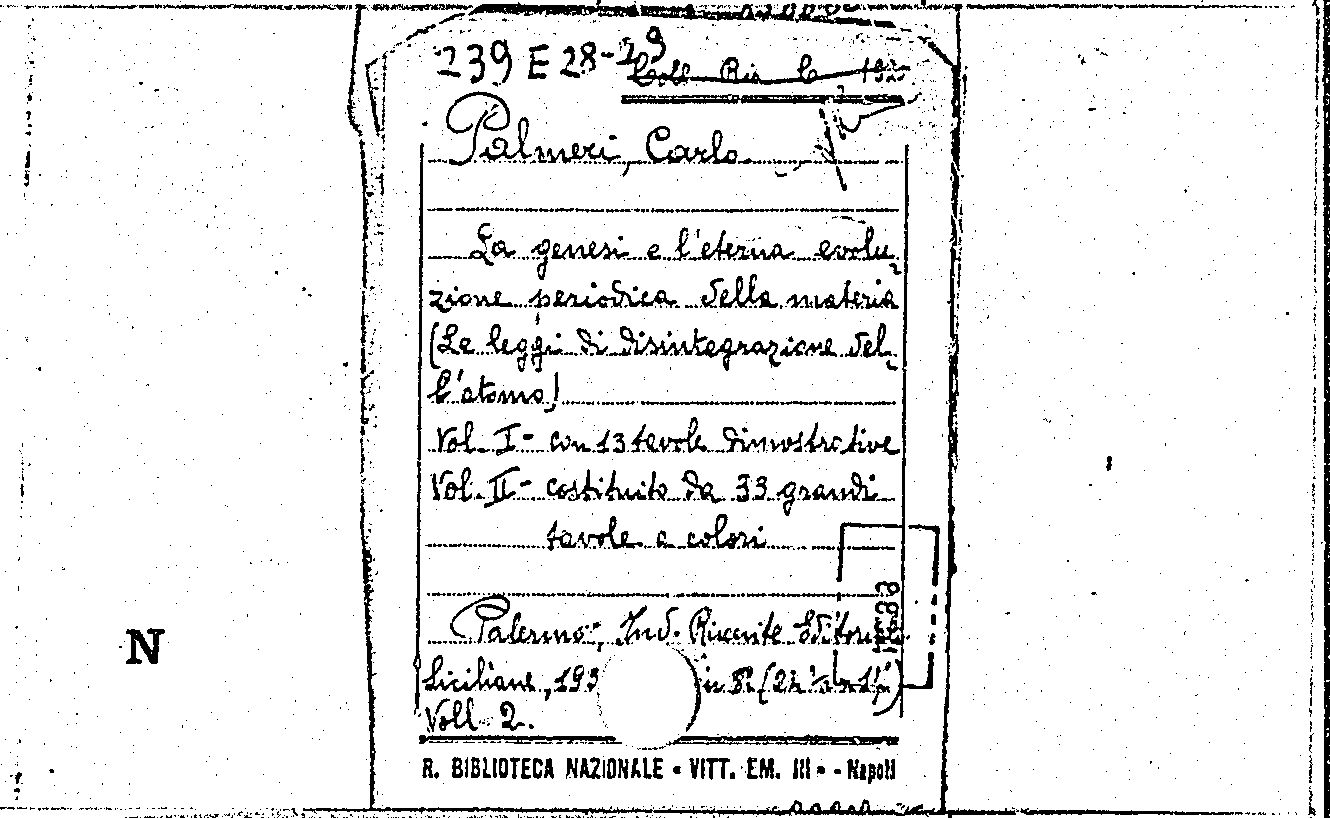 239 E 28-29
Palmeri, Carlo
La genesi e l'eterna evolu-
zione periodica della materia
(Le leggi di disintegrazione del-
l'atomo)
Vol. I - con 13 tavole dimostrative
Vol. II - costituito da 33 grandi
tavole a colori
Palermo, Ind. Riunite Editoriali
Siciliane, 193 in 8°
Voll. 2.
N
R. BIBLIOTECA NAZIONALE - VITT. EM. III - - Napoli